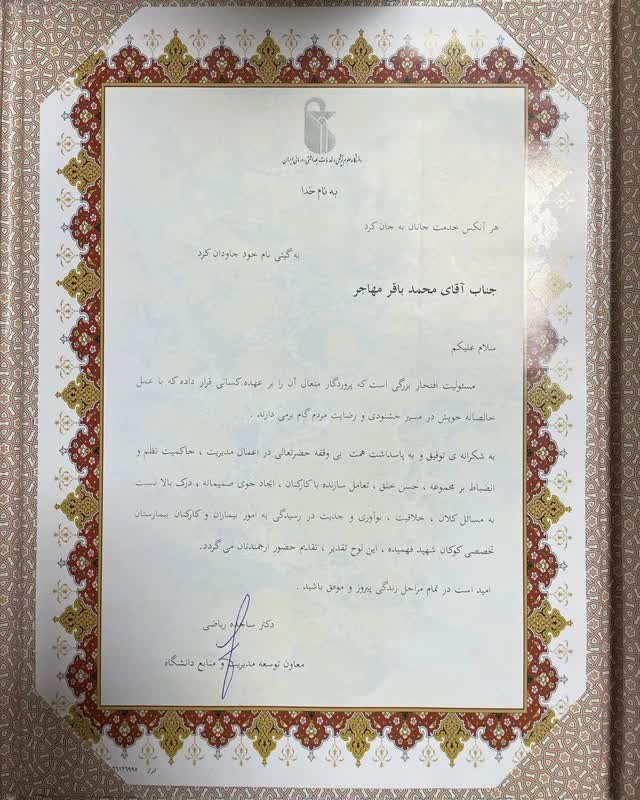 دانشگاه علوم پزشکی و خدمات بهداشتی درمانی ایران
به نام خدا
هر آنکس خدمت جانان به جان کرد
به گیتی نام خود جاودان کرد
جناب آقای محمد باقر مهاجر
سلام علیکم
مسئولیت افتخار بزرگی است که پروردگار متعال آن را بر عهده کسانی قرار داده که با عمل
خالصانه خویش در مسیر خشنودی و رضایت مردم گام برمی دارند .
به شکرانه ی توفیق و به پاسداشت همت بی وقفه حضرتعالی در اعمال مدیریت ، حاکمیت نظم و
انضباط بر مجموعه ، حسن خلق ، تعامل سازنده با کارکنان ، ایجاد جوی صمیمانه ، درک بالا نسبت
به مسائل کلان ، خلاقیت ، نوآوری و جدیت در رسیدگی به امور بیماران و کارکنان بیمارستان
تخصصی کودکان شهید فهمیده ، این لوح تقدیر ، تقدیم حضور ارجمندتان می گردد.
امید است در تمام مراحل زندگی پیروز و موفق باشید .
دکتر ساجده ریاضی
معاون توسعه مدیریت و منابع دانشگاه